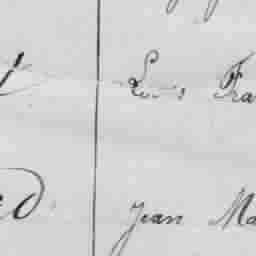 Louis Fra
ed Jean Ma